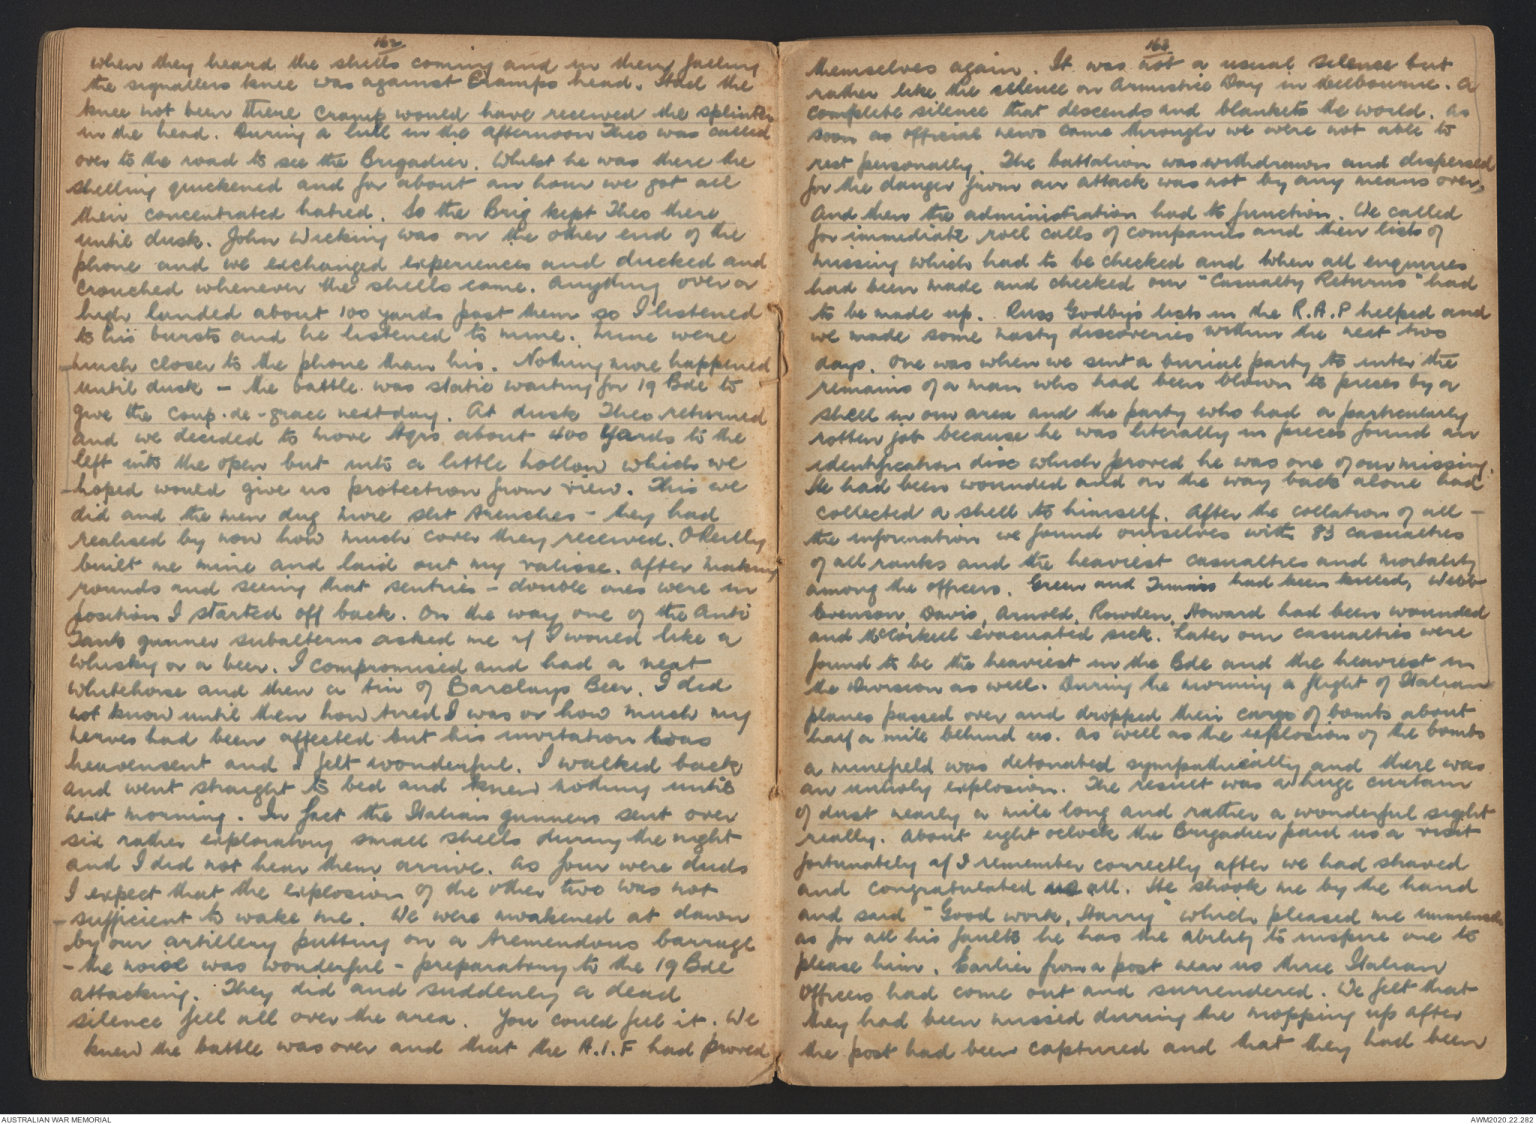 162
when they heard the shells coming and in their falling
the signallers knee was against Cramps head. Had the
knee not been there Cramp would have received the splinter
in the head. During a lull in the afternoon Theo was called
over to the road to see the Brigadier. Whilst he was there the
shelling quickened and for about an hour we got all
their concentrated hatred. So the Brig kept Theo there
until dusk. John Wicking was on the other end of the
phone and we exchanged experiences and ducked and
crouched whenever the shells came. Anything over or
high landed about 100 yards past them so I listened
to his bursts and he listened to mine. Mine were
much closer to the phone than his. Nothing more happened
until dusk - the battle was static waiting for 19 Bde to
give the coup-de-grace next day. At dusk Theo returned
and we decided to move Hqrs about 400 yards to the
left into the open but into a little hollow which we
hoped would give us protection from view. This we
did and the men dug more slit trenches - they had
realised by now how much cover they received. O'Reilly
built me mine and laid out my valisse. After making
rounds and seeing that sentries - double ones were in
position I started off back. On the way one of the Anti
Tank gunner subalterns asked me if I would like a
whisky or a beer. I compromised and had a neat
whitehorse and then a tin of Barclays Beer. I did
not know until then how tired I was or how much my
nerves had been affected but his invitation was
heavensent and I felt wonderful. I walked back
and went straight to bed and knew nothing until
next morning. In fact the Italian gunners sent over
six rather exploratory small shells during the night
and I did not hear them arrive. As four were duds
I expect that the explosion of the other two was not
sufficient to wake me. We were awakened at dawn
by our artillery putting on a tremendous barrage
- the noise was wonderful - preparatory to the 19 Bde
attacking. They did and suddenly a dead
silence fell all over the area. You could feel it. We
knew the battle was over and that the A.I.F had proved
163
themselves again. It was not a usual silence but
rather like the silence on Armistice Day in Melbourne. A
complete silence that descends and blankets the world. As
soon as official news came through we were not able to
rest personally. The battalion was withdrawn and dispersed
for the danger from air attack was not by any means over,
And then the administration had to function. We called
for immediate roll calls of companies and their lists of
missing which had to be checked and when all enquiries
had been made and checked our "Casualty Returns" had
to be made up. Russ Godby's lists in the R.A.P helped and
we made some nasty discoveries within the next two
days. One was when we sent a burial party to inter the
remains of a man who had been blown to pieces by a
shell in our area and the party who had a particularly
rotten job because he was literally in pieces found an
identification disc which proved he was one of our missing.
He had been wounded and on the way back alone had
collected a shell to himself. After the collation of all -
the information we found ourselves with 83 casualties
of all ranks and the heaviest casualties and mortality
among the officers. Green and had been killed, Webb
Evenson, Davis, Arnold, Rowden, Howard had been wounded
and McCorkell evacuated sick. Later our casualties were
found to be the heaviest in the Bde and the heaviest in
the Division as well. During the morning a flight of Italian
planes passed over and dropped their cargo of bombs about
half a mile behind us. As well as the explosion of the bombs
a minefield was detonated sympathically and there was
an unholy explosion. The result was a huge curtain
of dust nearly a mile long and rather a wonderful sight
really. About eight oclock the Brigadier paid us a visit
fortunately if I remember correctly after we had shaved
and congratulated us all. He shook me by the hand
and said "Good work, Harry" which pleased me immensely
as for all his faults he has the ability to inspire one to
please him. Earlier from a post near us three Italian
Officers had come out and surrendered. We felt that
they had been missed during the mopping up after
the post had been captured and that they had been
AUSTRALIAN WAR MEMORIAL
AWM2020.22.282